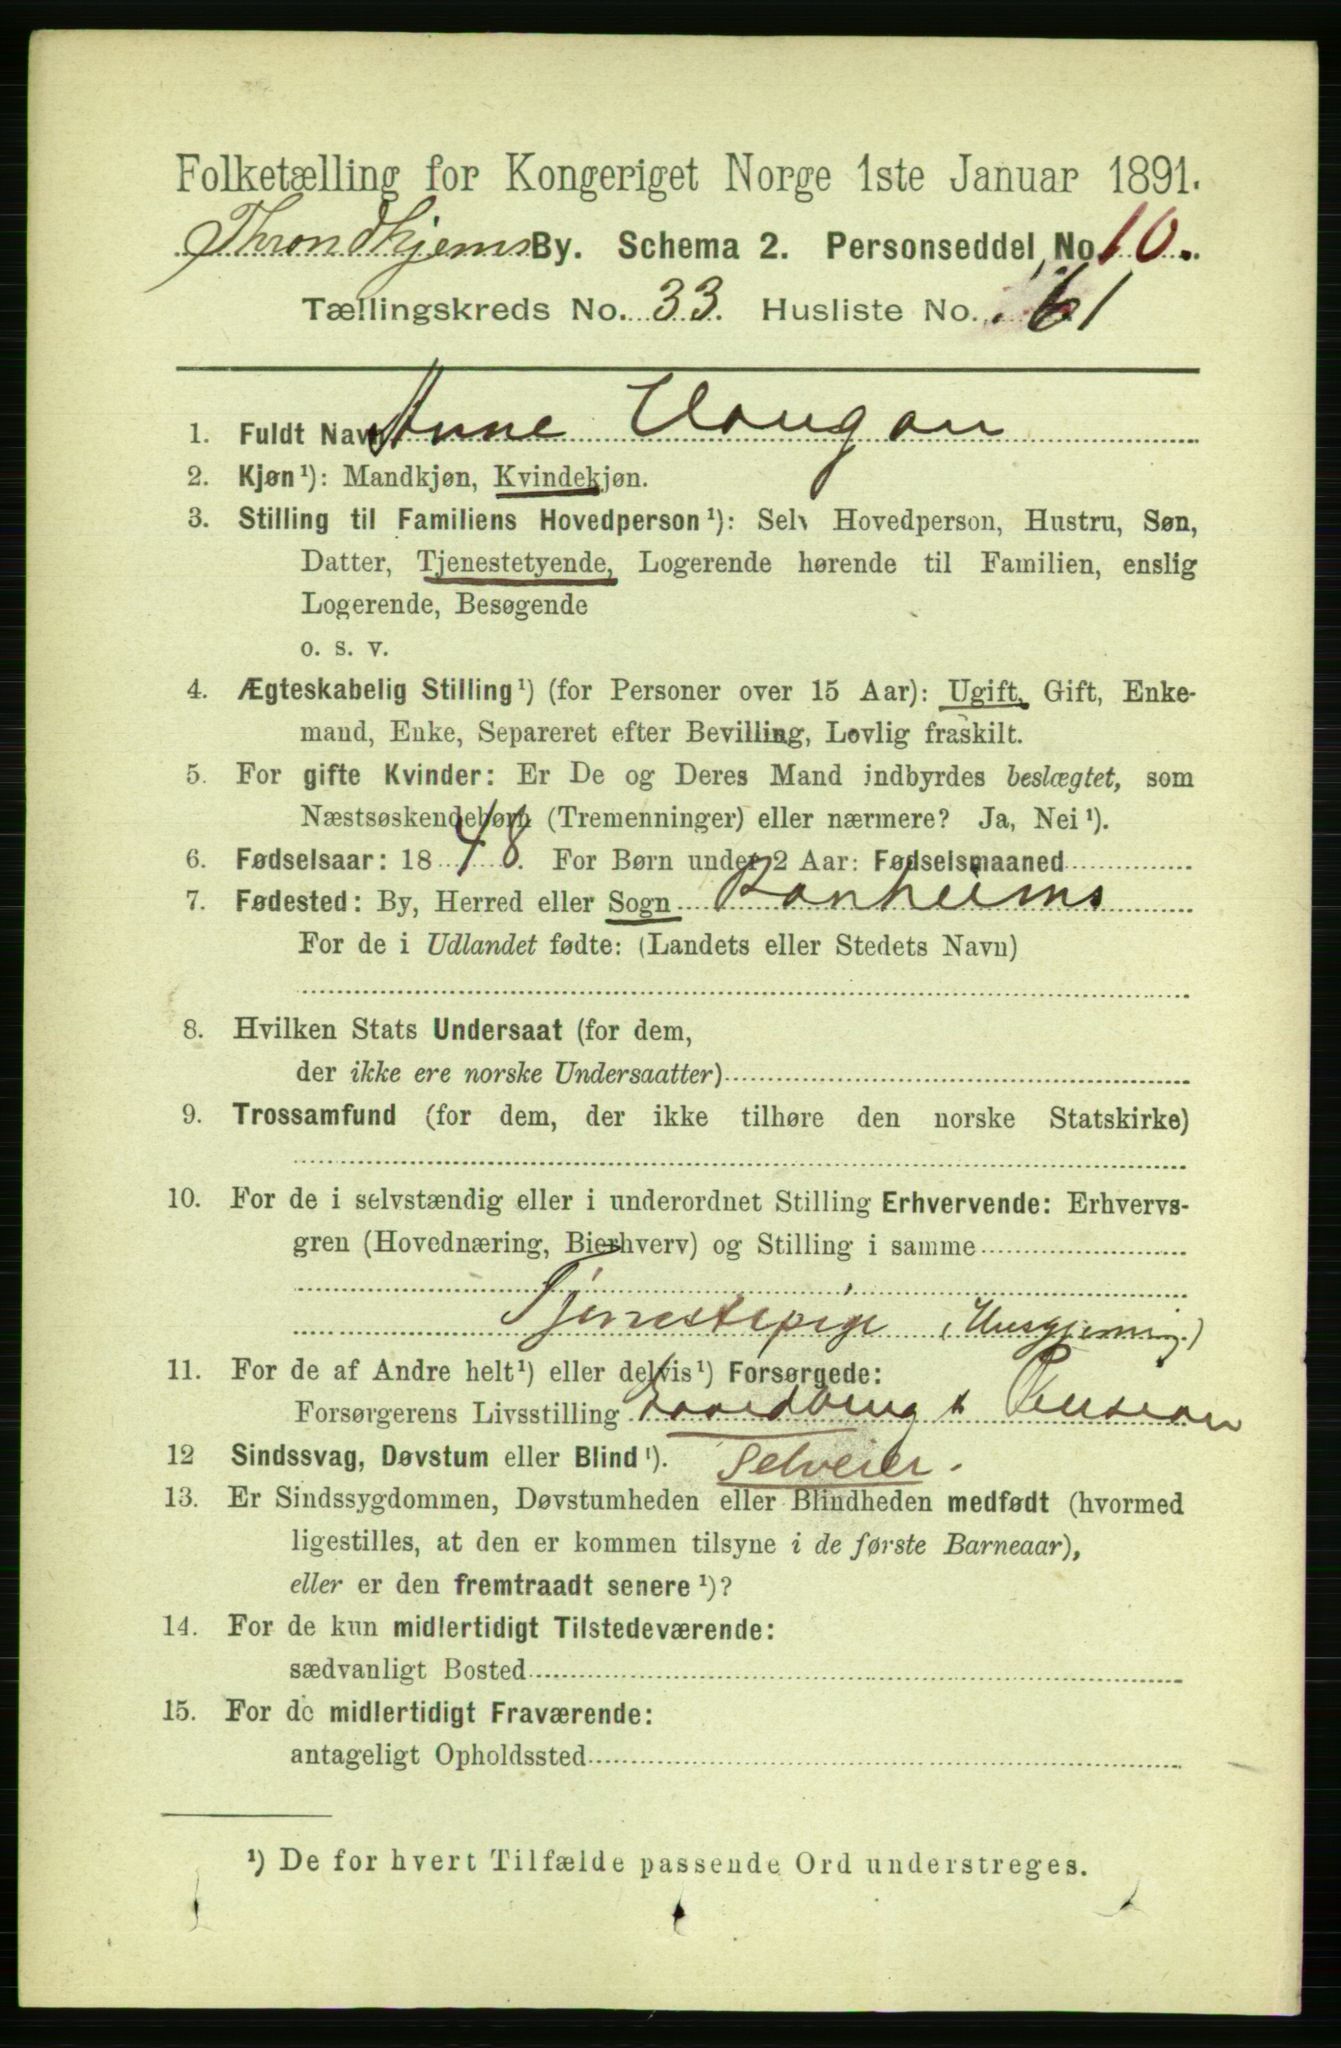 Folketælling for Kongeriget Norge 1ste Januar 1891.
Throndhjems By. Schema 2. Personseddel No. 10.
Tællingskreds No. 33. Husliste No. 61
1. Fuldt Navn Anne Haugan
2. Kjøn¹): Mandkjøn, Kvindekjøn.
3. Stilling til Familiens Hovedperson¹): Selv Hovedperson, Hustru, Søn,
Datter, Tjenestetyende, Logerende hørende til Familien, enslig
Logerende, Besøgende
o. s. v.
4. Ægteskabelig Stilling¹) (for Personer over 15 Aar): Ugift, Gift, Enke-
mand, Enke, Separeret efter Bevilling, Lovlig fraskilt.
5. For gifte Kvinder: Er De og Deres Mand indbyrdes beslægtet, som
Næstsøskendebørn (Tremenninger) eller nærmere? Ja, Nei¹).
6. Fødselsaar: 1848. For Børn under 2 Aar: Fødselsmaaned
7. Fødested: By, Herred eller Sogn Ranheims
For de i Udlandet fødte: (Landets eller Stedets Navn)
8. Hvilken Stats Undersaat (for dem,
der ikke ere norske Undersaatter)
9. Trossamfund (for dem, der ikke tilhøre den norske Statskirke)
10. For de i selvstændig eller i underordnet Stilling Erhvervende: Erhvervs-
gren (Hovednæring, Bierhverv) og Stilling i samme
Tjenestepige (Husgjerning.)
11. For de af Andre helt¹) eller delvis¹) Forsørgede:
Forsørgerens Livsstilling
12 Sindssvag, Døvstum eller Blind¹). Selveier.
13. Er Sindssygdommen, Døvstumheden eller Blindheden medfødt (hvormed
ligestilles, at den er kommen tilsyne i de første Barneaar),
eller er den fremtraadt senere¹)?
14. For de kun midlertidigt Tilstedeværende:
sædvanligt Bosted
15. For de midlertidigt Fraværende:
antageligt Opholdssted
¹) De for hvert Tilfælde passende Ord understreges.